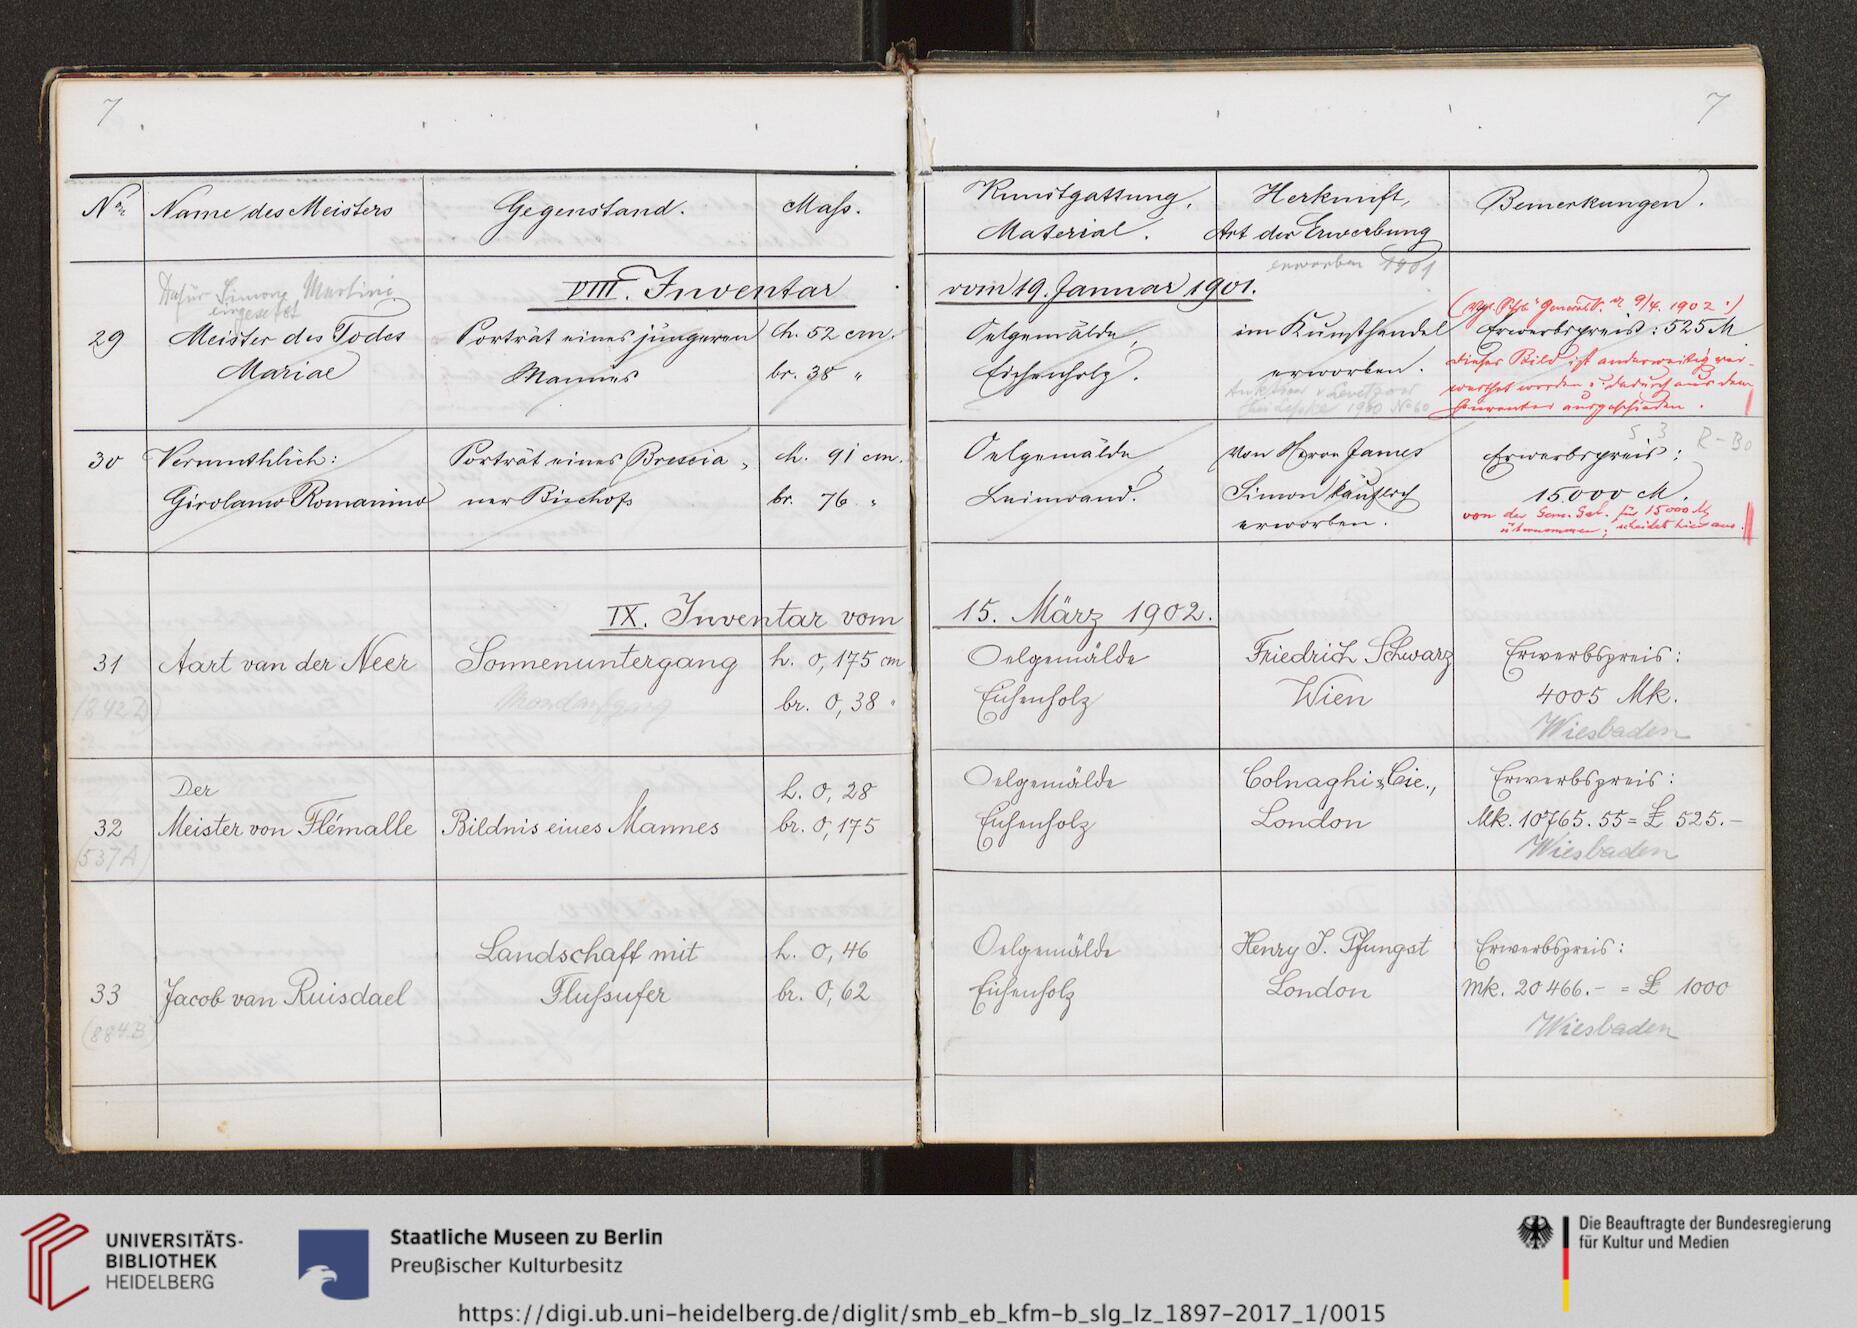 7
7
No. Name des Meisters Gegenstand. Maß. Kunstgattung, Material. Herkunft, Art der Erwerbung Bemerkungen.
erworben 1901
VIII. Inventar vom 19. Januar 1901.
Dafür Simone Martini
eingesetzt
(Vgl. 9/4. 1902.)
29 Meister des Todes Porträt eines jüngeren h. 52 cm. Oelgemälde, im Kunsthandel Erwerbspreis: 525 M
Mariae Mannes br. 38 " Eichenholz. erworben.
Dieses Bild ist anderweitig ver-
werthet worden u. dadurch aus dem
Inventar ausgeschieden.
30 Vermuthlich: Porträt eines Brescia- h. 91 cm. Oelgemälde, Von Herrn James Erwerbspreis:
Girolamo Romanino ner Bischofs br. 76 " Leinwand. Simon käuflich 15000 M.
erworben.
von der Gem. Gal. für 15000 M
übernommen; scheidet hier aus.
IX. Inventar vom 15. März 1902.
31 Aart van der Neer Sonnenuntergang h. 0,175 cm Oelgemälde Friedrich Schwarz Erwerbspreis:
(842 D) Mondaufgang br. 0,38 " Eichenholz Wien 4005 Mk.
Wiesbaden
Der h. 0,28 Oelgemälde Colnaghi & Cie., Erwerbspreis:
32 Meister von Flémalle Bildnis eines Mannes br. 0,175 Eichenholz London Mk. 10765.55 = £ 525.–
(537A) Wiesbaden
Landschaft mit h. 0,46 Oelgemälde Henry J. Pfungst Erwerbspreis:
33 Jacob van Ruisdael Flußufer br. 0,62 Eichenholz London Mk. 20466.– = £ 1000
(884B) Wiesbaden
UNIVERSITÄTS-
BIBLIOTHEK
HEIDELBERG
Staatliche Museen zu Berlin
Preußischer Kulturbesitz
Die Beauftragte der Bundesregierung
für Kultur und Medien
https://digi.ub.uni-heidelberg.de/diglit/smb_eb_kfm-b_slg_lz_1897-2017_1/0015